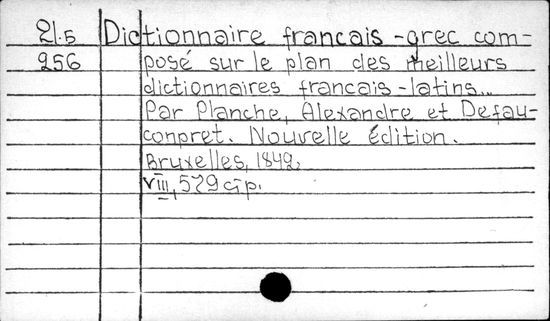 21.5 Dictionnaire francais-grec com-
256 posé sur le plan des meilleurs
dictionnaires francais-latins...
Par Planche, Alexandre et Defau-
conpret. Nouvelle édition.
Bruxelles, 1849.
VIII, 579 стр.